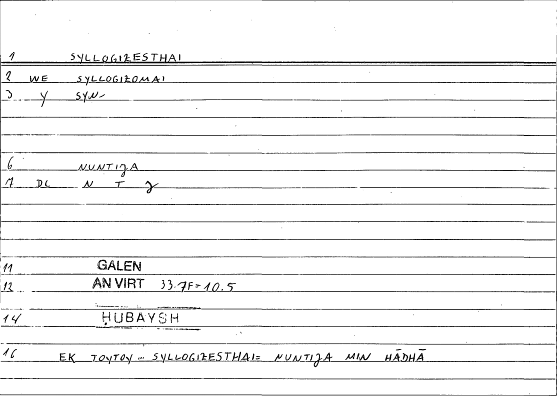 1 SYLLOGIZESTHAI
2 WE SYLLOGIZOMAI
3 Y SYN-
6 NUNTIJA
7 DC N T J
11 GALEN
12 AN VIRT 33.7F=10.5
14 ḤUBAYSH
16 EK TOYTOY - SYLLOGIZESTHAI= NUNTIJA MIN HĀDHĀ